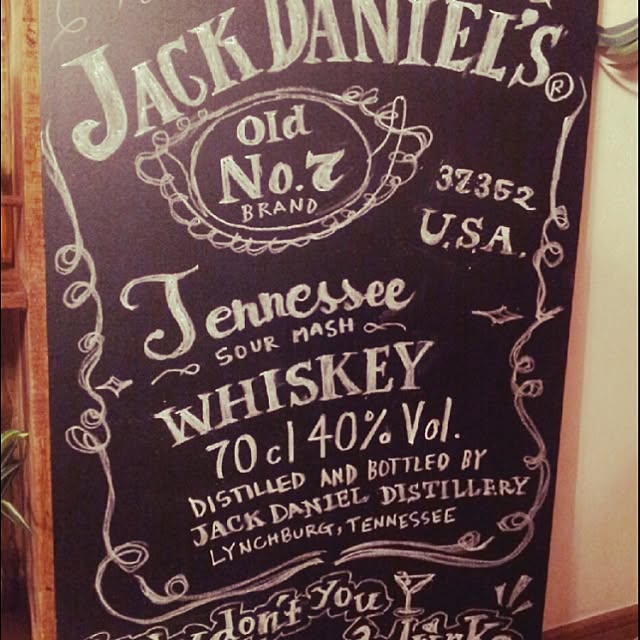 JACK DANIEL'S®
Old
No.7
BRAND
37352
U.S.A.
Tennessee
SOUR MASH
WHISKEY
70cl 40% Vol.
DISTILLED AND BOTTLED BY
JACK DANIEL DISTILLERY
LYNCHBURG, TENNESSEE
don't You